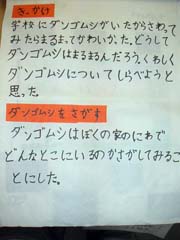 きっかけ
学校にダンゴムシがいたからさわって
みたらまるまってかわいかた。どうして
ダンゴムシはまるまるんだろう。くわしく
ダンゴムシについてしらべようと
思った。
ダンゴムシをさがす
ダンゴムシはぼくの家のにわで
どんなとこにいるのかさがしてみるこ
とにした。